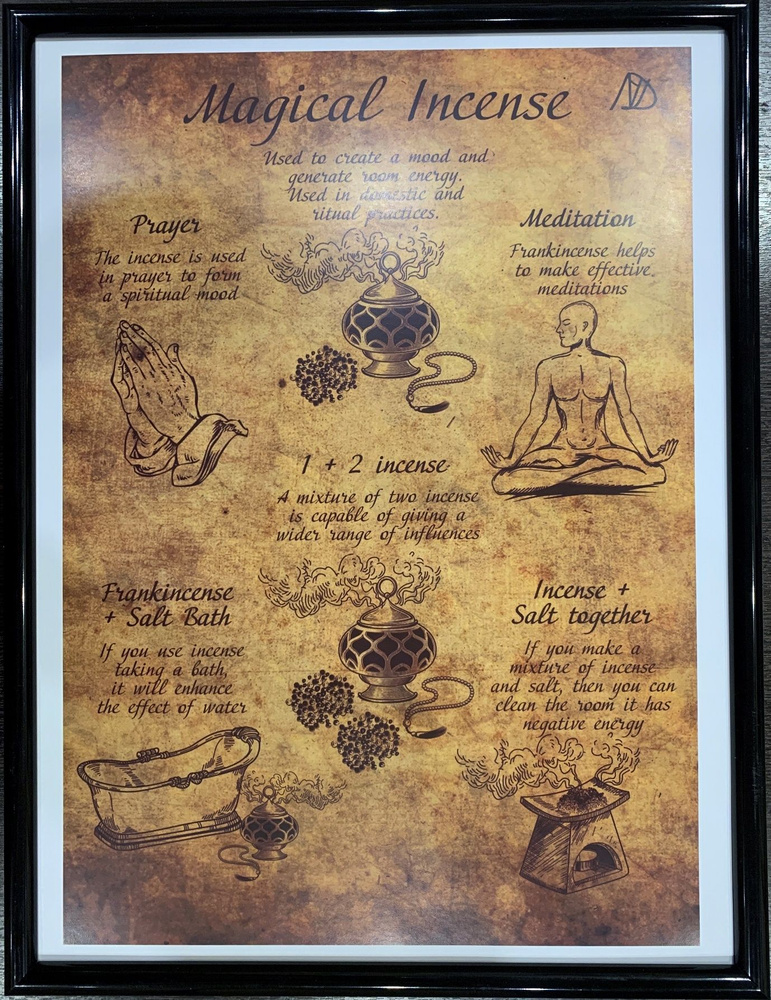 Magical Incense
Used to create a mood and
generate room energy.
Used in domestic and
ritual practices.
Prayer
The incense is used
in prayer to form
a spiritual mood
Meditation
Frankincense helps
to make effective
meditations
1 + 2 incense
A mixture of two incense
is capable of giving a
wider range of influences
Frankincense
+ Salt Bath
If you use incense
taking a bath,
it will enhance
the effect of water
Incense +
Salt together
If you make a
mixture of incense
and salt, then you can
clean the room it has
negative energy